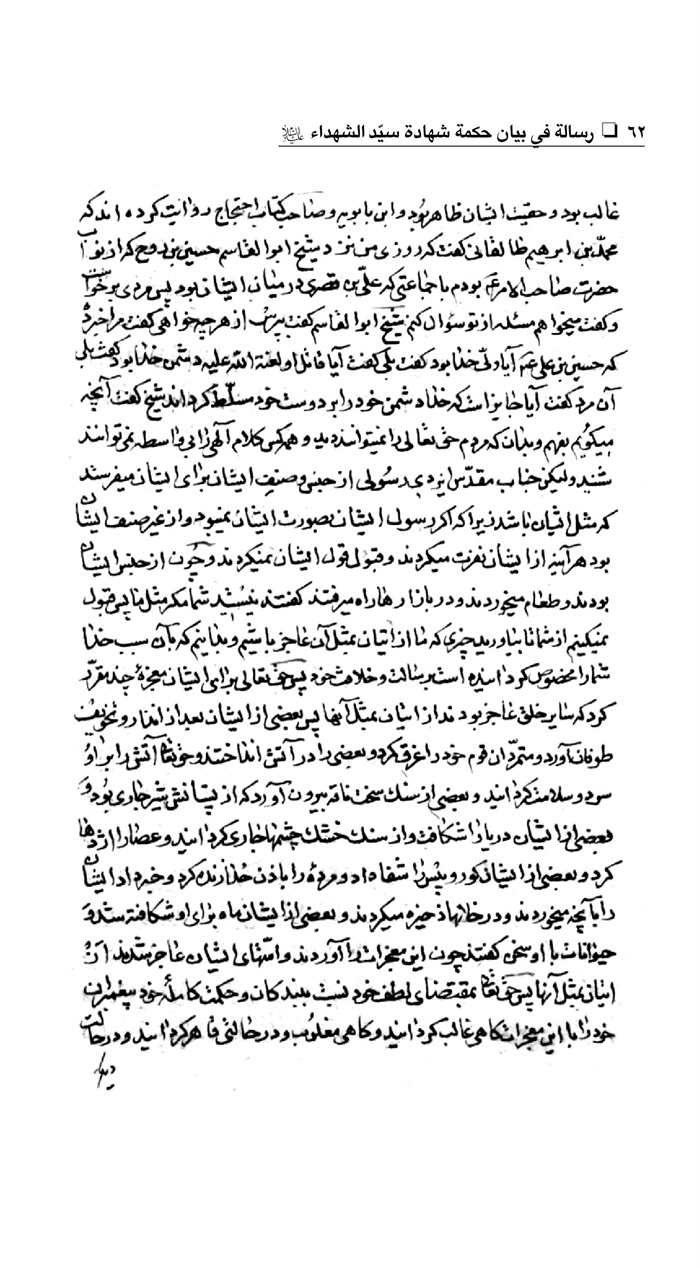 ٦٢ ❑ رسالة في بيان حكمة شهادة سيّد الشهداء عليه السلام
غالب بود و حقیت ایشان ظاهر بود و ابن بابویه و صاحب کتاب احتجاج روایت کرده اند که
محمّد بن ابرهیم طالقانی گفت که روزی من نزد شیخ ابوالقاسم حسین بن روح که از نواب
حضرت صاحب الامرع بودم با جماعتی که علی بن قصری در میان ایشان بود پس مردی برخواست
و گفت میخواهم مسئله از تو سوال کنم شیخ ابوالقاسم گفت بپرس از هر چه خواهی گفت مرا خبر ده
که حسین بن علی ع م آیا ولی خدا بود گفت بلی گفت آیا قاتل او لعنة الله علیه دشمن خدا بود گفت بلی
آن مرد گفت آیا جایز است که خدا دشمن خود را بر دوست خود مسلّط گرداند شیخ گفت آنچه
میگویم بفهم و بدان که مردم حق تعالی را نمیتوانند دید و همه کس کلام آلهی را بی واسطه نمی توانند
شنید ولیکن جناب مقدّس ایزدی رسولی از جنس و صنف ایشان برای ایشان میفرستد
که مثل ایشان باشد زیرا که اگر رسول ایشان بصورت ایشان نمیبود و از غیر صنف ایشان
بود هر آینه از ایشان نفرت میکردند و قبول قول ایشان نمیکردند و چون از جنس ایشان
بودند و طعام میخوردند و در بازارها راه میرفتند گفتند نیستید شما مگر مثل ما پس قبول
نمیکنیم از شما تا بیاورید چیزی که ما از اتیان بمثل آن عاجز باشیم و بدانیم که بآن سبب خدا
شما را مخصوص گردانیده است برسالت و خلافت خود پس حق تعالی برای ایشان معجزۀ چند مقرّر
کرد که سایر خلق عاجز بودند از اتیان بمثل آنها پس بعضی از ایشان بعد از انذار و تخویف
طوفان آورد و متمرّدان قوم خود را غرق کرد و بعضی را در آتش انداختند و حق تعالی آتش را بر او
سرد و سلامت گردانید و بعضی از سنگ سخت ناقه بیرون آورد که از پستانش شیر جاری بود و
بعضی از ایشان دریا را شکافت و از سنگ خشک چشمها جاری گردانید و عصا را اژدها
کرد و بعضی از ایشان کور و پیس را شفا داد و مرده را باذن خدا زنده کرد و خبر داد ایشان
را بآنچه میخوردند و در خانها ذخیره میکردند و بعضی از ایشان ماه برای او شکافته شد و
حیوانات با او سخن گفتند چون این معجزات را آوردند و امّتهای ایشان عاجز شدند از
اتیان بمثل آنها پس حق تعالی بمقتضای لطف خود نسبت ببندکان و حکمت کاملۀ خود پیغمبران
خود را با این معجزات گاهی غالب گردانید و گاهی مغلوب و در حالتی قاهر گردانید و در حالت
دیگر